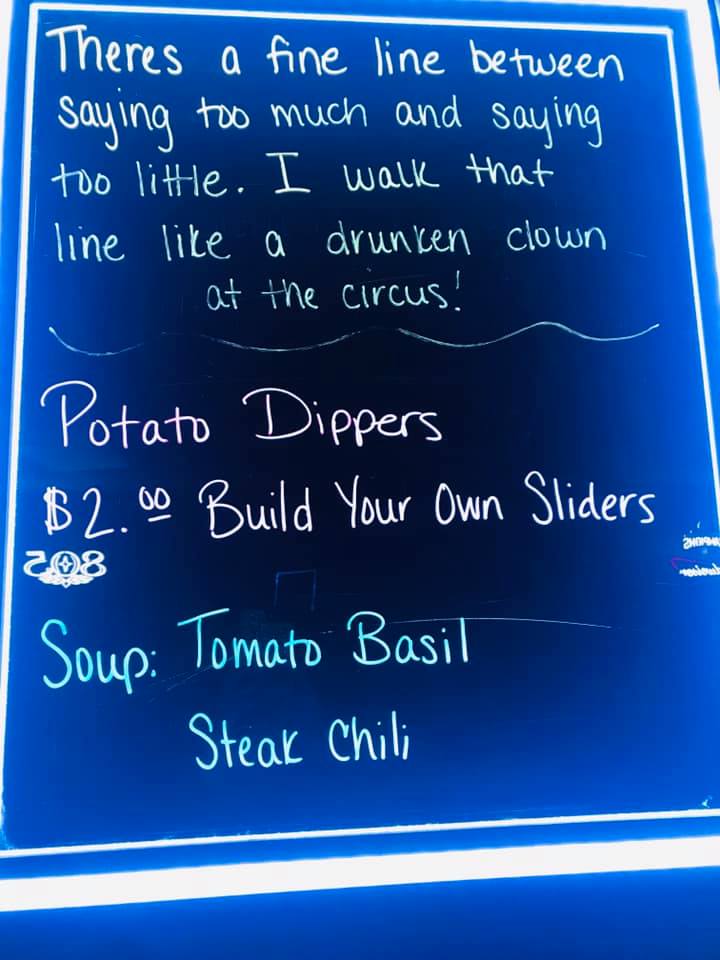 Theres a fine line between
saying too much and saying
too little. I walk that
line like a drunken clown
at the circus!
Potato Dippers
$2.00 Build Your Own Sliders
805
Soup: Tomato Basil
Steak Chili